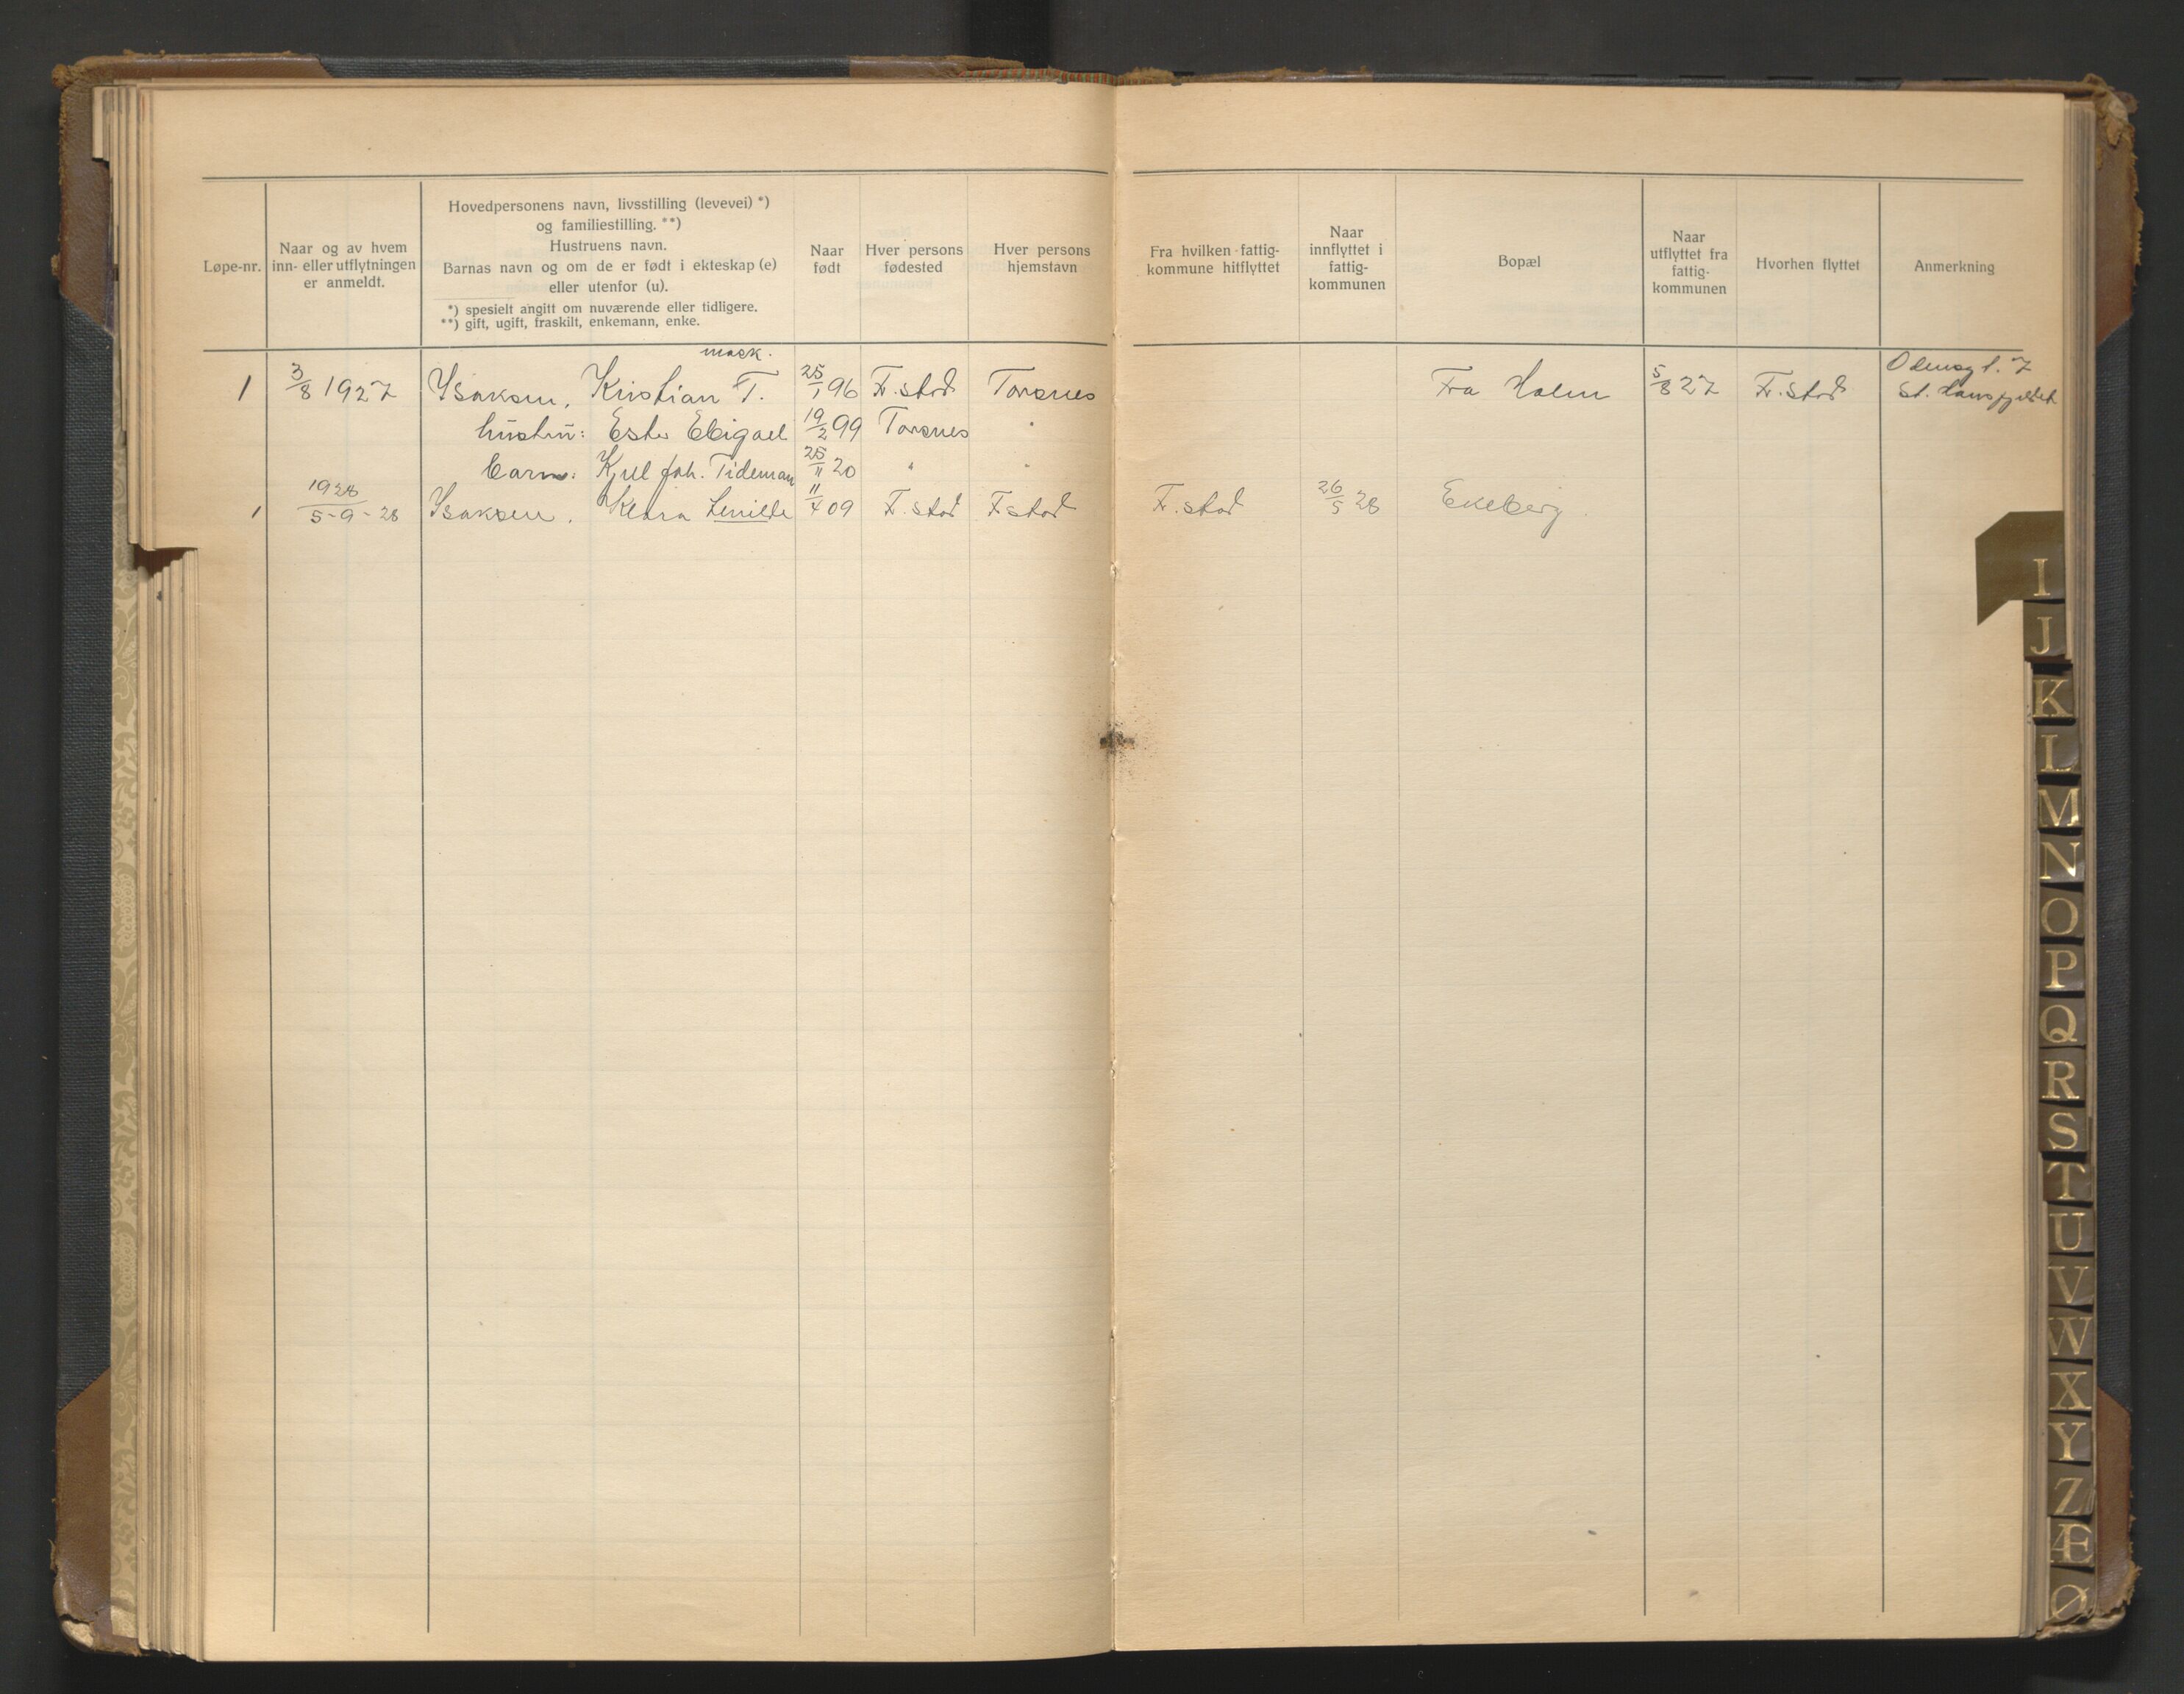 Løpe-nr.
Naar og av hvem
inn- eller utflytningen
er anmeldt.
Hovedpersonens navn, livsstilling (levevei) *)
og familiestilling. **)
Hustruens navn.
Barnas navn og om de er født i ekteskap (e)
eller utenfor (u).
*) spesielt angitt om nuværende eller tidligere.
**) gift, ugift, fraskilt, enkemann, enke.
Naar
født
Hver persons
fødested
Hver persons
hjemstavn
Fra hvilken fattig-
kommune hitflyttet
Naar
innflyttet i
fattig-
kommunen
Bopæl
Naar
utflyttet fra
fattig-
kommunen
Hvorhen flyttet
Anmerkning
mask.
1 3/8 1927 Isaksen, Kristian T. 25/1 96 F.stad Torsnes Fra Holm 5/8 27 F.stad
St. Hansfjeldet
hustru: Ester Ebigael 19/2 99 Torsnes "
barn: Kjel Joh. Tideman 25/11 20 " "
1928
1 5-9-28 Isaksen, Klara 11/4 09 F.stad F.stad F.stad 26/5 28 Ekeberg.
I
J
K
L
M
N
O
P
Q
R
S
T
U
V
W
X
Y
Z
Æ
Ø